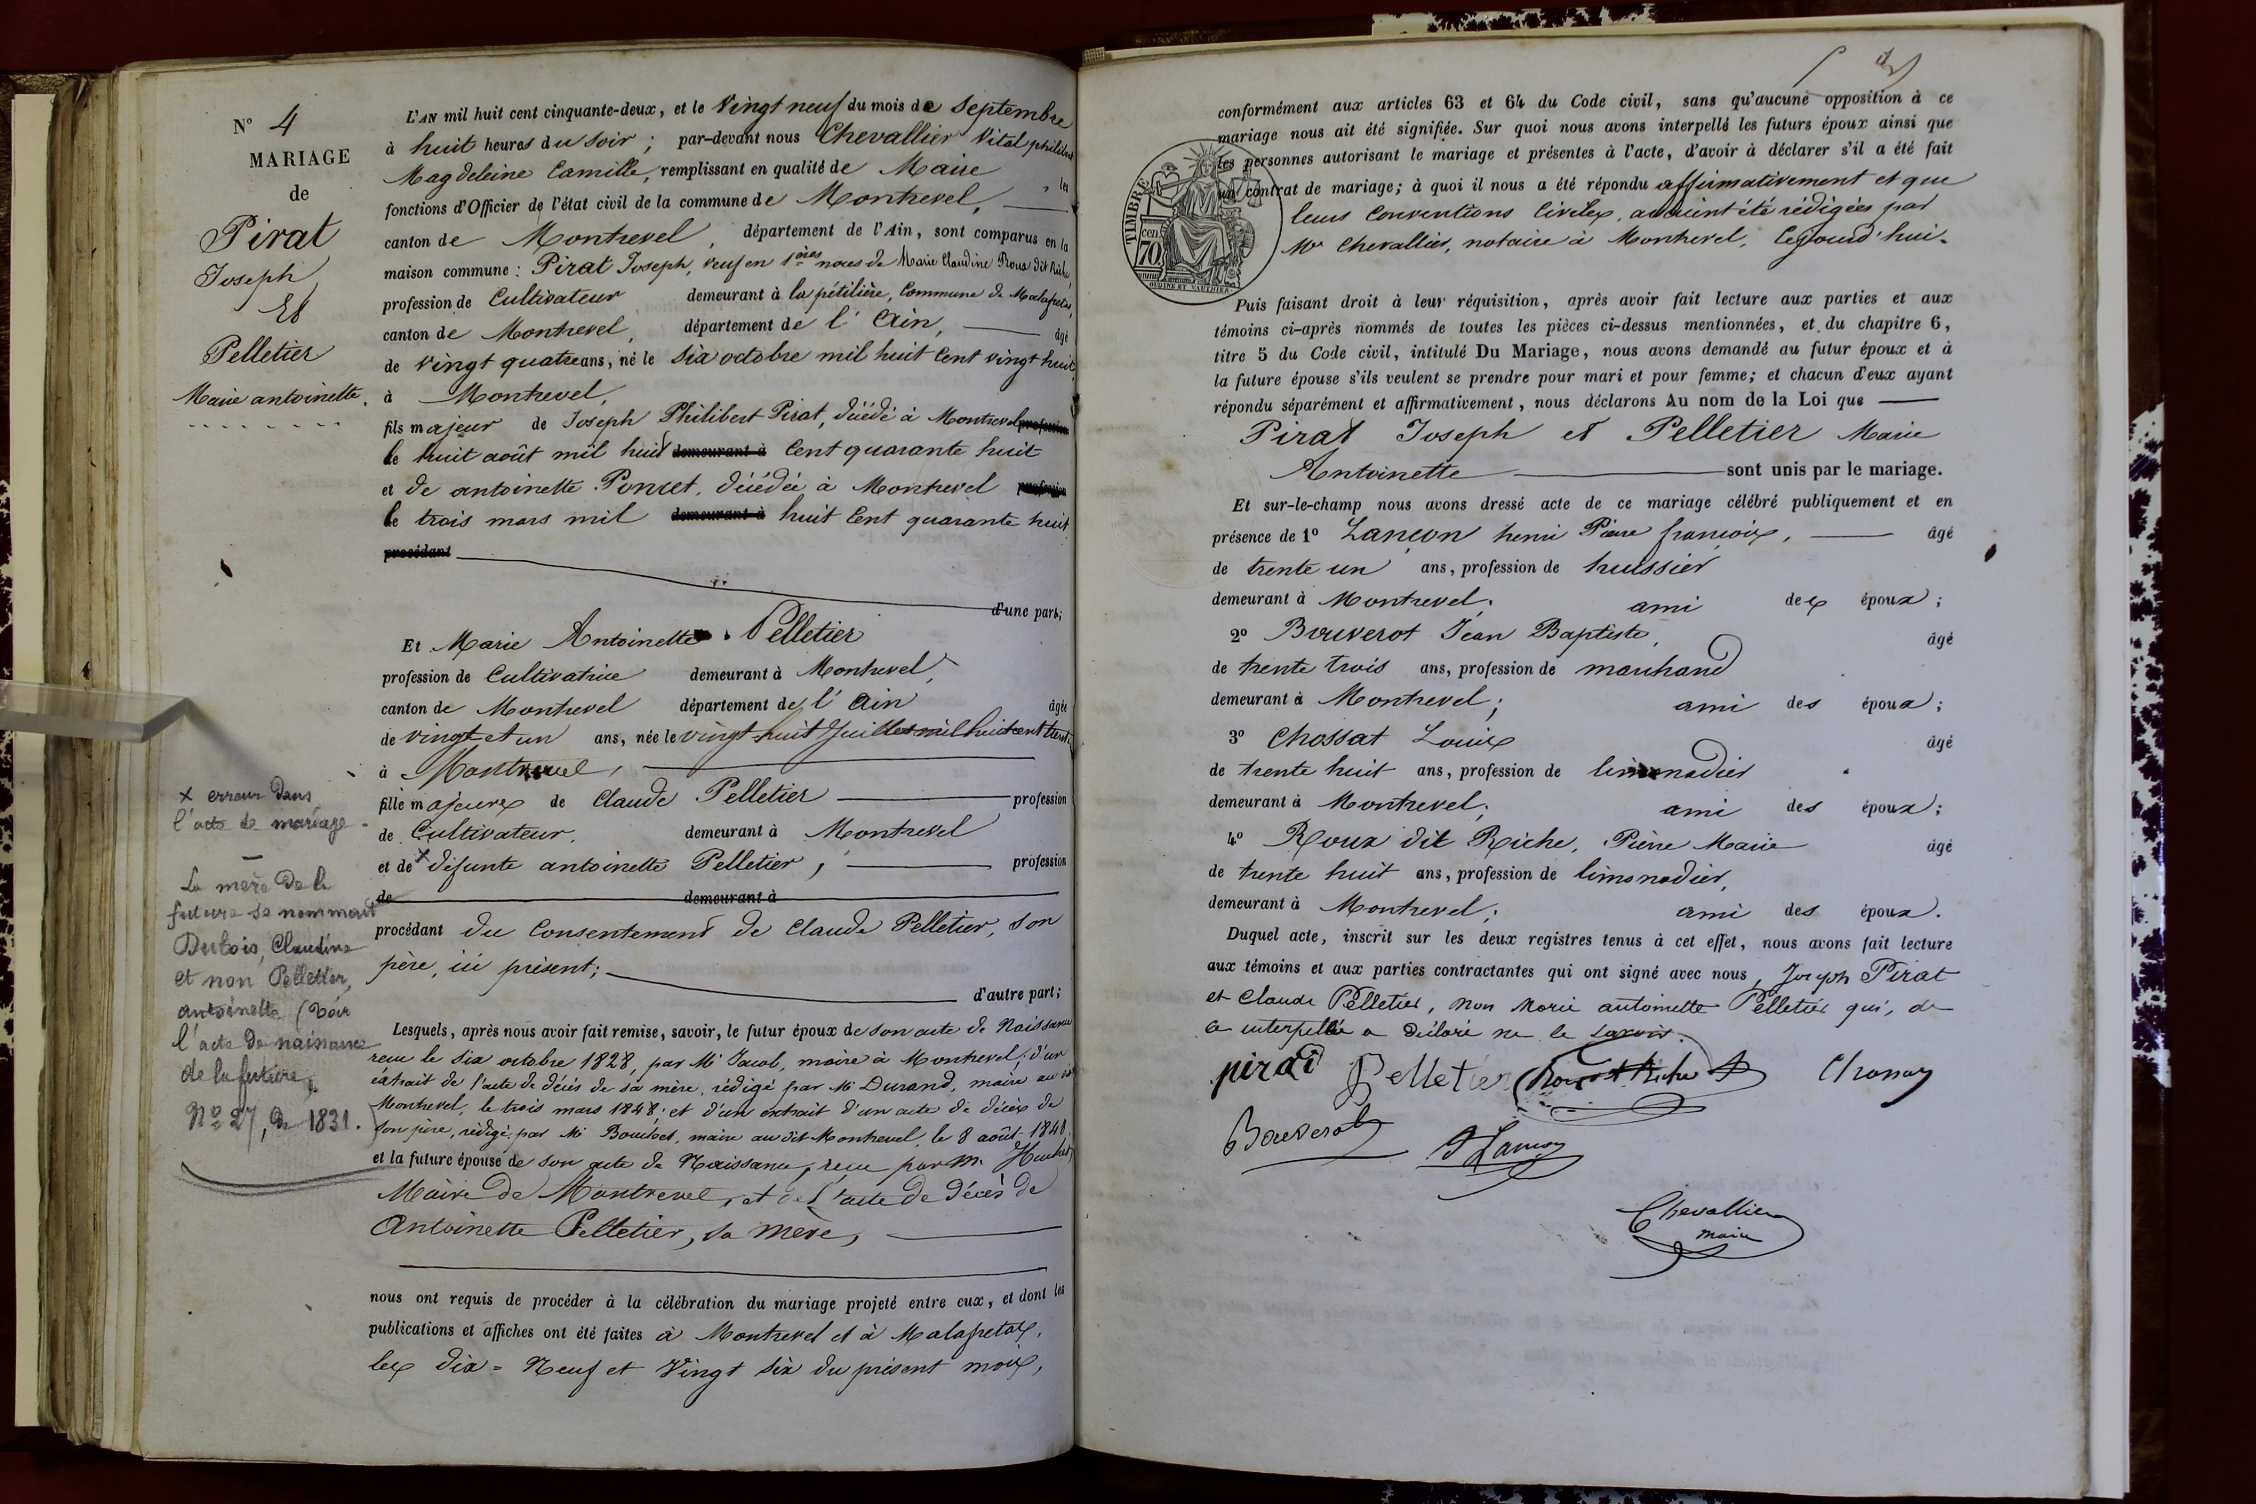 N° 4
MARIAGE
de
Pirat
Joseph
Et
Pelletier
Marie antoinette.
x erreur dans
l'acte de mariage
La mère de la
future se nommait
Dubois, Claudine
et non Pelletier,
antoinette (Voir
l'acte de naissance
de la future,
N° 27, de 1831.
L'AN mil huit cent cinquante-deux, et le Vingt neuf du mois de Septembre
à huit heures du soir ; par-devant nous Chevallier Vital philibert
Magdeleine Camille, remplissant en qualité de Maire les
fonctions d'Officier de l'état civil de la commune de Montrevel,
canton de Montrevel, département de l'Ain, sont comparus en la
maison commune : Pirat Joseph, veuf en 1ères noces de Marie Claudine Roux dit Riche,
profession de Cultivateur demeurant à la pétilière, Commune de Malafretaz,
canton de Montrevel, département de l'Ain, âgé
de vingt quatre ans, né le six octobre mil huit Cent vingt huit,
à Montrevel,
fils majeur de Joseph Philibert Pirat, décédé à Montrevel profession
le huit août mil huit demeurant à Cent quarante huit
et de antoinette Poncet, décédée à Montrevel profession
le trois mars mil demeurant à huit Cent quarante huit
procédant
d'une part;
Et Marie Antoinette Pelletier
profession de Cultivatrice demeurant à Montrevel,
canton de Montrevel département de l'Ain âgée
de vingt et un ans, née le vingt huit Juillet mil huit cent trente
à Montrevel,
fille majeure de Claude Pelletier profession
de Cultivateur, demeurant à Montrevel
et de x défunte antoinette Pelletier, profession
de demeurant à
procédant du Consentement de Claude Pelletier, son
père, ici présent;
d'autre part;
Lesquels, après nous avoir fait remise, savoir, le futur époux de son acte de Naissance
reçu le six octobre 1828, par Mr Jacob, maire à Montrevel; d'un
extrait de l'acte de décès de sa mère, rédigé par Mr Durand, maire au dit
Montrevel, le trois mars 1848; et d'un extrait d'un acte de décès de
son père, rédigé par Mr maire au dit Montrevel, le 8 août 1848.
et la future épouse de son acte de Naissance, reçu par M.
Maire de Montrevel, et de l'acte de décès de
Antoinette Pelletier, sa mère,
nous ont requis de procéder à la célébration du mariage projeté entre eux, et dont les
publications et affiches ont été faites à Montrevel et à Malafretaz,
les dix-Neuf et Vingt six du présent mois,
conformément aux articles 63 et 64 du Code civil, sans qu'aucune opposition à ce
mariage nous ait été signifiée. Sur quoi nous avons interpellé les futurs époux ainsi que
les personnes autorisant le mariage et présentes à l'acte, d'avoir à déclarer s'il a été fait
un contrat de mariage; à quoi il nous a été répondu affirmativement et que
leurs Conventions Civiles, avaient été rédigées par
Mr Chevallier, notaire à Montrevel, Cejourd'hui.
TIMBRE
cen.
70
Puis faisant droit à leur réquisition, après avoir fait lecture aux parties et aux
témoins ci-après nommés de toutes les pièces ci-dessus mentionnées, et du chapitre 6,
titre 5 du Code civil, intitulé Du Mariage, nous avons demandé au futur époux et à
la future épouse s'ils veulent se prendre pour mari et pour femme; et chacun d'eux ayant
répondu séparément et affirmativement, nous déclarons Au nom de la Loi que
Pirat Joseph et Pelletier Marie
Antoinette sont unis par le mariage.
Et sur-le-champ nous avons dressé acte de ce mariage célébré publiquement et en
présence de 1° Lançon henri Pierre françois, âgé
de trente un ans, profession de huissier
demeurant à Montrevel; ami des époux ;
2° Bouverot Jean Baptiste, âgé
de trente trois ans, profession de marchand
demeurant à Montrevel; ami des époux ;
3° Chossat Louis âgé
de trente huit ans, profession de limonadier
demeurant à Montrevel; ami des époux;
4° Roux dit Riche, Pierre Marie âgé
de trente huit ans, profession de limonadier,
demeurant à Montrevel; ami des époux.
Duquel acte, inscrit sur les deux registres tenus à cet effet, nous avons fait lecture
aux témoins et aux parties contractantes qui ont signé avec nous, Joseph Pirat
et Claude Pelletier, non Marie antoinette Pelletier qui, de
ce interpellée a déclaré ne le savoir.
pirat Pelletier Roux dit Riche Chossat
Bouverot
H Lançon
Chevallier
maire